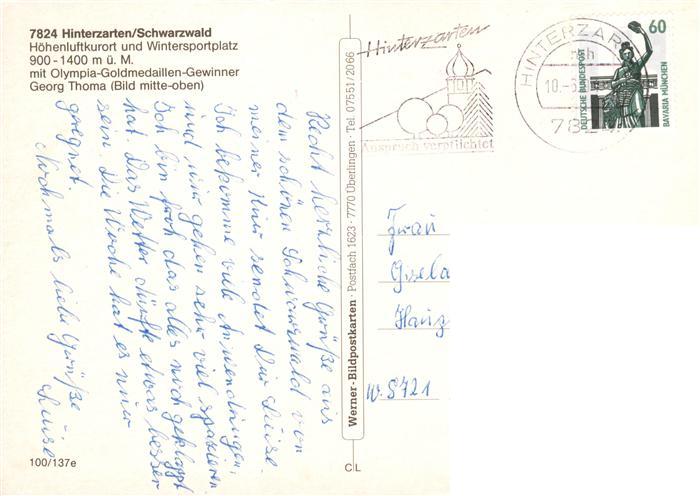 7824 Hinterzarten/Schwarzwald
Höhenluftkurort und Wintersportplatz
900 - 1400 m ü. M.
mit Olympia-Goldmedaillen-Gewinner
Georg Thoma (Bild mitte-oben)
Recht herzliche Grüße aus
dem schönen Schwarzwald von
meiner Kur sendet Dir Luise.
Ich bekomme viele Anwendungen,
und wir gehen sehr viel spazieren.
Ich bin froh das alles noch geklappt
hat. Das Wetter dürfte etwas besser
sein. Die Woche hat es nur
geregnet.
Nochmals liebe Grüße
Luise
100/137e
Werner-Bildpostkarten · Postfach 1623 · 7770 Überlingen · Tel. 07551/2066
C L
Hinterzarten
Anspruch verpflichtet
HINTERZAR
10.-
782
60
DEUTSCHE BUNDESPOST
BAVARIA MÜNCHEN
Frau
Gisela
Hauz
W. 8721